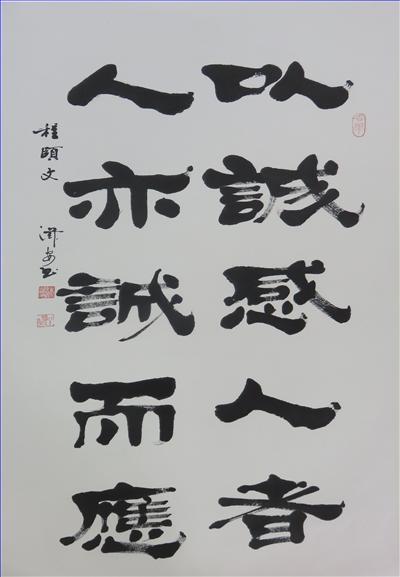 以誠感人者
人亦誠而應
程頤文